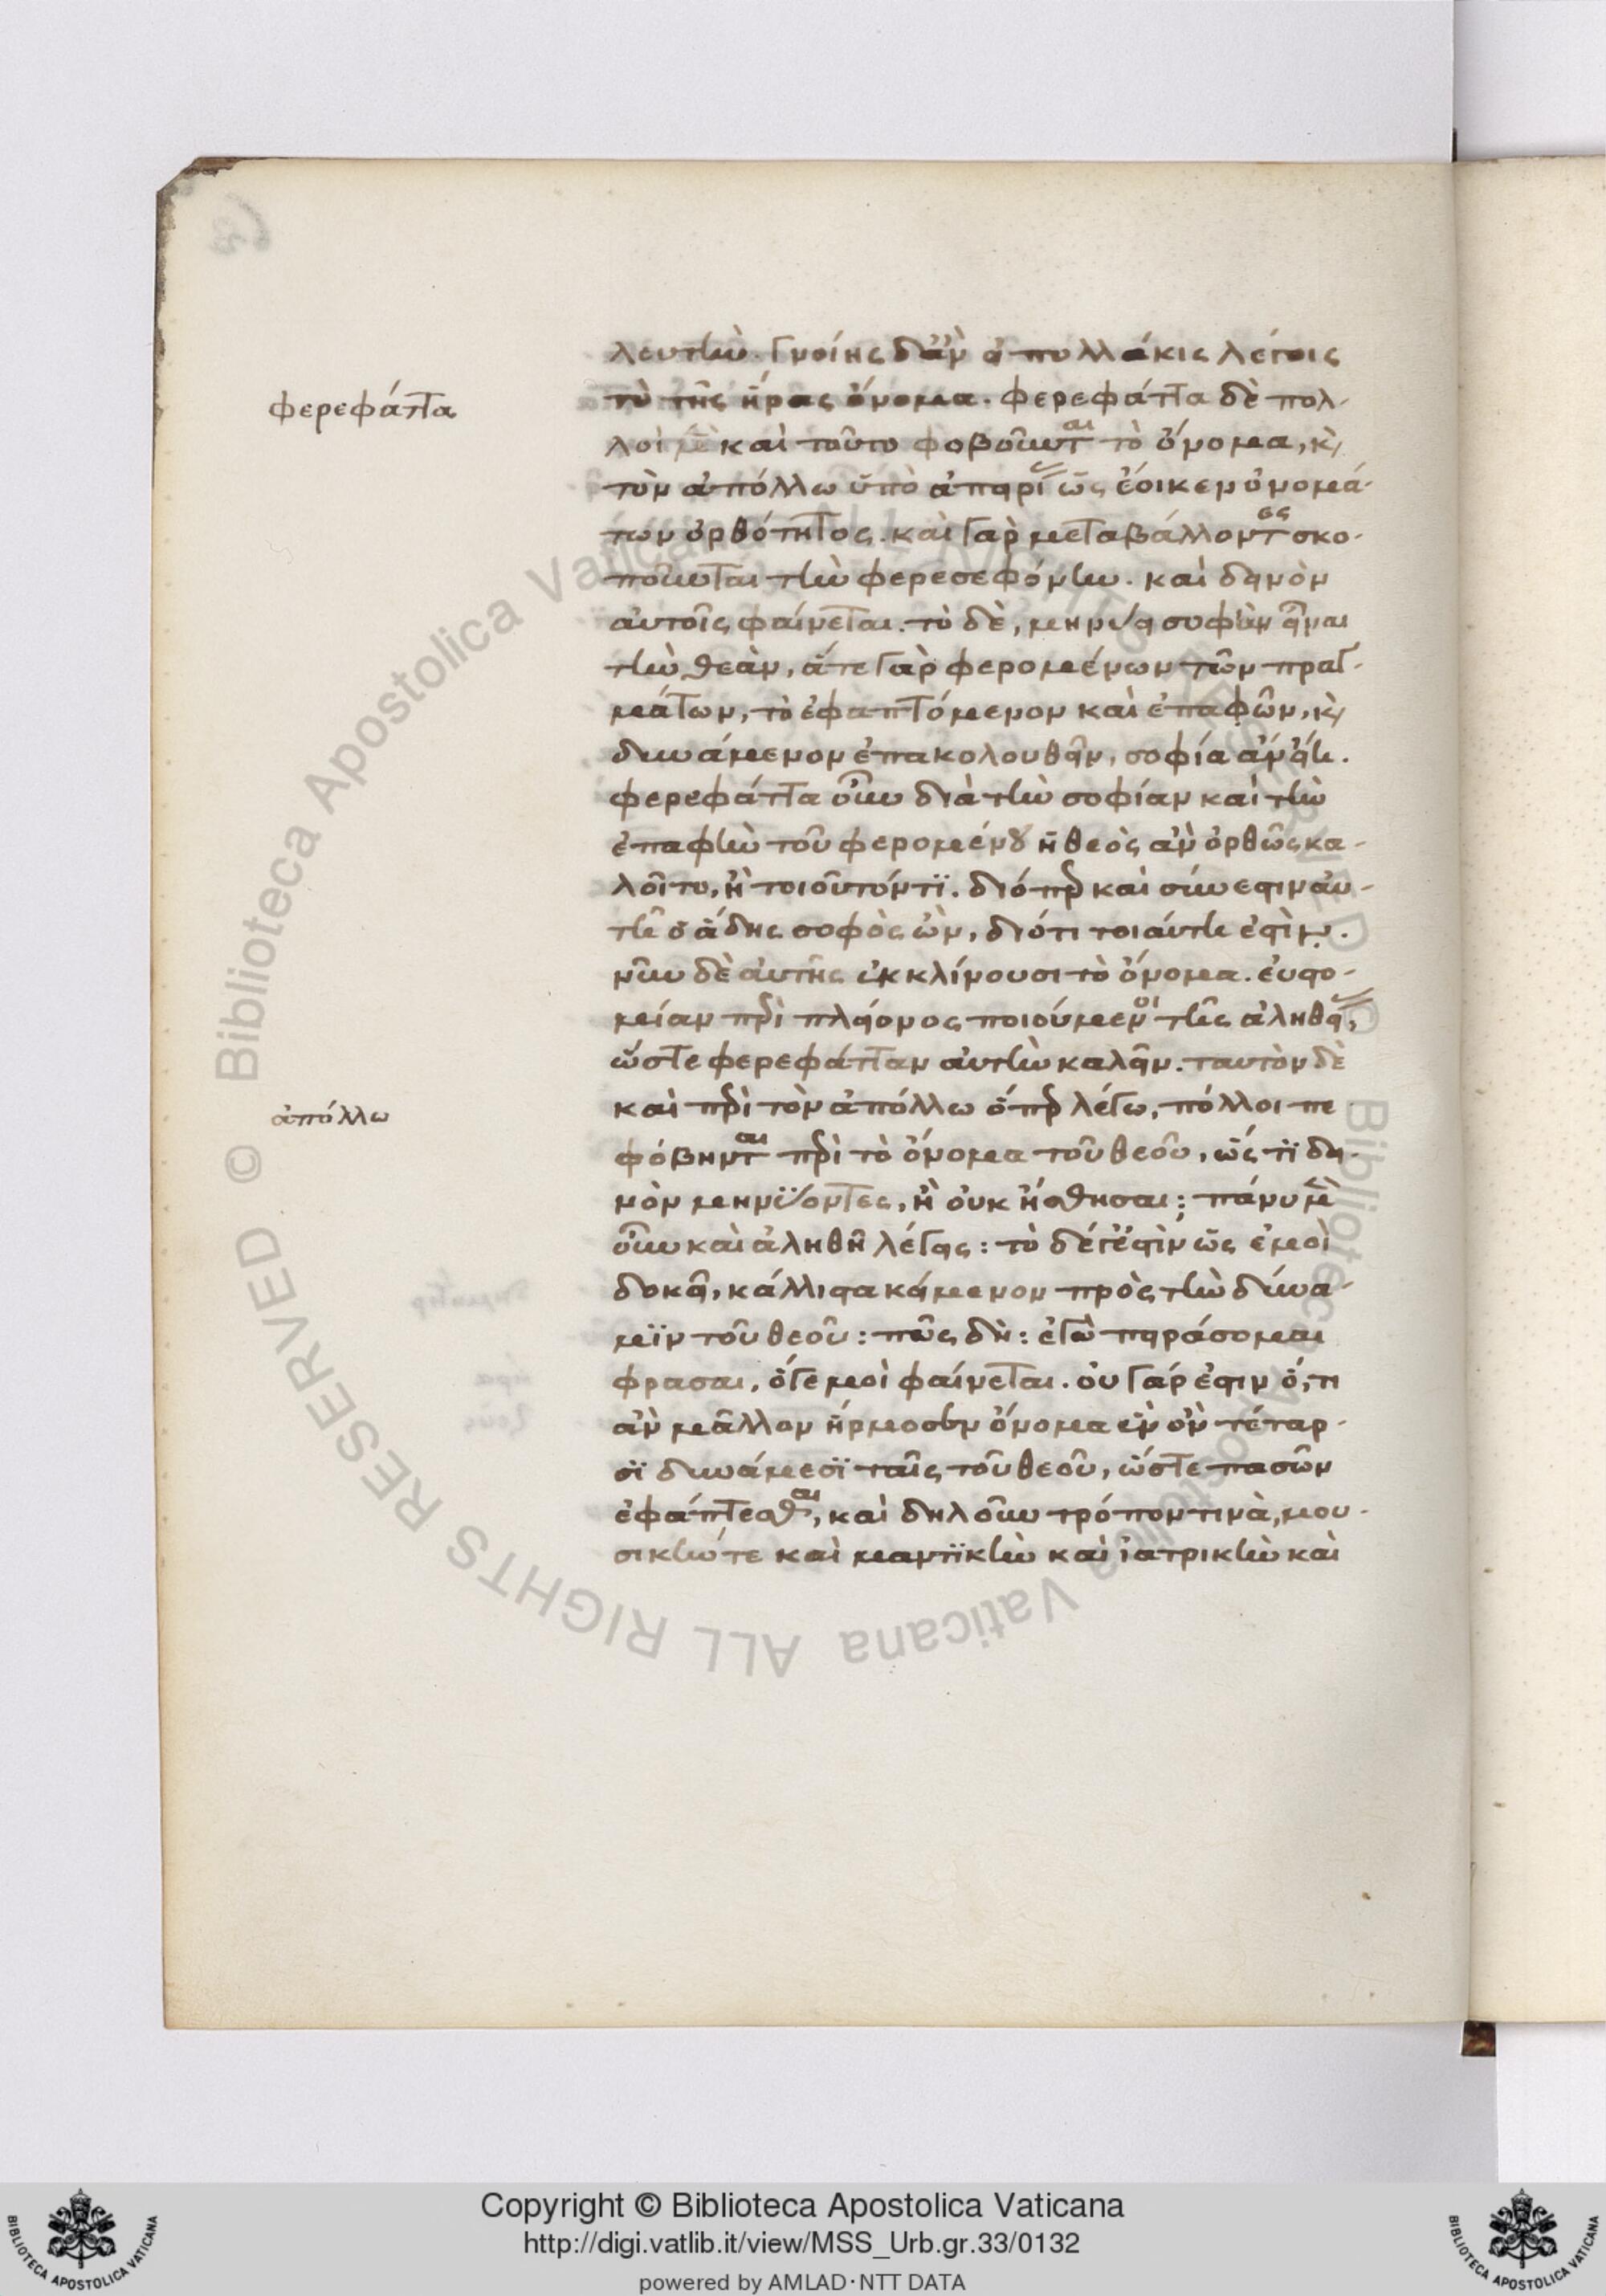 φερεφάττα
ἀπόλλω
λευτὴν. γνοίης δἂν εἰ πολλάκις λέγοις
τὸ τῆς ἥρας ὄνομα. φερεφάττα δὲ πολ-
λοὶ μὲν καὶ τοῦτο φοβοῦνται τὸ ὄνομα, κ,
τὸν ἀπόλλω ὑπὸ ἀπειρίας ὡς ἔοικεν ὀνομά-
των ὀρθότητος. καὶ γὰρ μεταβάλλοντες σκο-
ποῦνται τὴν φερεσεφόνην. καὶ δεινὸν
αὐτοῖς φαίνεται. τὸ δὲ, μηνύει σοφὴν εἶναι
τὴν θεὰν, ἅτε γὰρ φερομένων τῶν πραγ-
μάτων, τὸ ἐφαπτόμενον καὶ ἐπαφῶν, κ,
δυνάμενον ἐπακολουθεῖν, σοφία ἂν εἴη.
φερεφάττα οὖν διὰ τὴν σοφίαν καὶ τὴν
ἐπαφὴν τοῦ φερομένου ἡ θεὸς ἂν ὀρθῶς κα-
λοῖτο, ἢ τοιοῦτόν τϊ. διόπερ καὶ σύνεστιν αὐ-
τῆ ὁ ἅδης σοφὸς ὢν, διότι τοιάυτη ἐστὶν.
νῦν δὲ αὐτῆς ἐκκλίνουσι τὸ ὄνομα. ἐυστο-
μίαν περὶ πλείονος ποιούμενοι τῆς ἀληθείας,
ὥστε φερεφάτταν αὐτὴν καλεῖν. ταυτὸν δὲ
καὶ περὶ τὸν ἀπόλλω ὅπερ λέγω, πόλλοι πε
φόβηνται περὶ τὸ ὄνομα τοῦ θεοῦ, ὥς τϊ δει-
νὸν μηνϋοντες, ἢ οὐκ ἤσθησαι; πάνυ μὲν
οὖν καὶ ἀληθῆ λέγεις: τὸ δέ γ' ἐστὶν ὡς ἐμοὶ
δοκεῖ, κάλλιστα κείμενον πρὸς τὴν δύνα-
μϊν τοῦ θεοῦ: πῶς δὴ: ἐγὼ πειράσομαι
φρασαι, ὅ γε μοὶ φαίνεται. οὐ γάρ ἐστιν ὅ,τι
ἂν μᾶλλον ἥρμοσεν ὄνομα ἓν ὂν τέταρ-
σϊ δυνάμεσϊ ταῖς τοῦ θεοῦ, ὥστε πασῶν
ἐφάπτεσθαι, καὶ δηλοῦν τρόπον τινὰ, μου-
σικήν τε καὶ μαντϊκὴν καὶ ἰατρικὴν καὶ
Copyright © Biblioteca Apostolica Vaticana
http://digi.vatlib.it/view/MSS_Urb.gr.33/0132
powered by AMLAD·NTT DATA
© Biblioteca Apostolica Vaticana ALL RIGHTS RESERVED
© Biblioteca Apostolica Vaticana ALL RIGHTS RESERVED
BIBLIOTECA APOSTOLICA VATICANA
BIBLIOTECA APOSTOLICA VATICANA